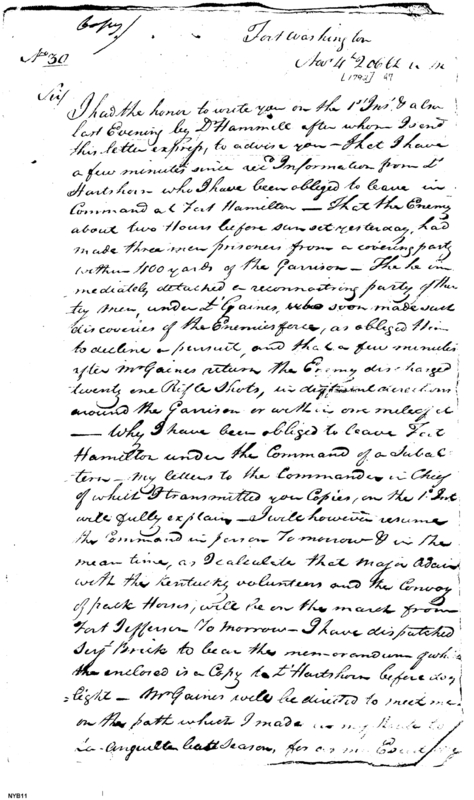 Copy
Fort Washington
No 30
Novr 4th 2 oClk
[1792]
Sir
I had the honor to write you on the 1st Inst & also
last Evening by Dr Hammill after whom I send
this letter express, to advise you — That I have
a few minutes since recd Information from Lt
Hartshorn who I have been obliged to leave in
Command at Fort Hamilton — That the Enemy
about two Hours before sun set yesterday, had
made three men prisoners from a covering party
within 400 yards of the Garrison — The he im
mediately detached a reconnoitring party of thir
ty Men, under Lt Gaines, who soon made such
discoveries of the Enemies force, as obliged Him
to decline a pursuit, and that a few minutes
after Mr Gaines return the Enemy discharged
twenty one Rifle Shots, in different directions
around the Garrison or within one mile of it
— Why I have been obliged to leave Fort
Hamilton under the Command of a Subal
tern — My letters to the Commander in Chief
of which I transmitted you Copies, on the 1st Inst
will fully explain — I will however resume
the Command in person Tomorrow & in the
mean time, as I calculate that Major Adair
with the Kentucky volunteers and the Convoy
of pack Horses, will be on the march from
Fort Jefferson To Morrow — I have dispatched
Serjt Brick to bear the memorandum of which
the enclosed is a Copy to Lt Hartshorn before day
=light — Mr Gaines will be directed to meet me
on the path which I made in my Route to
last Season, for as my
NYB11